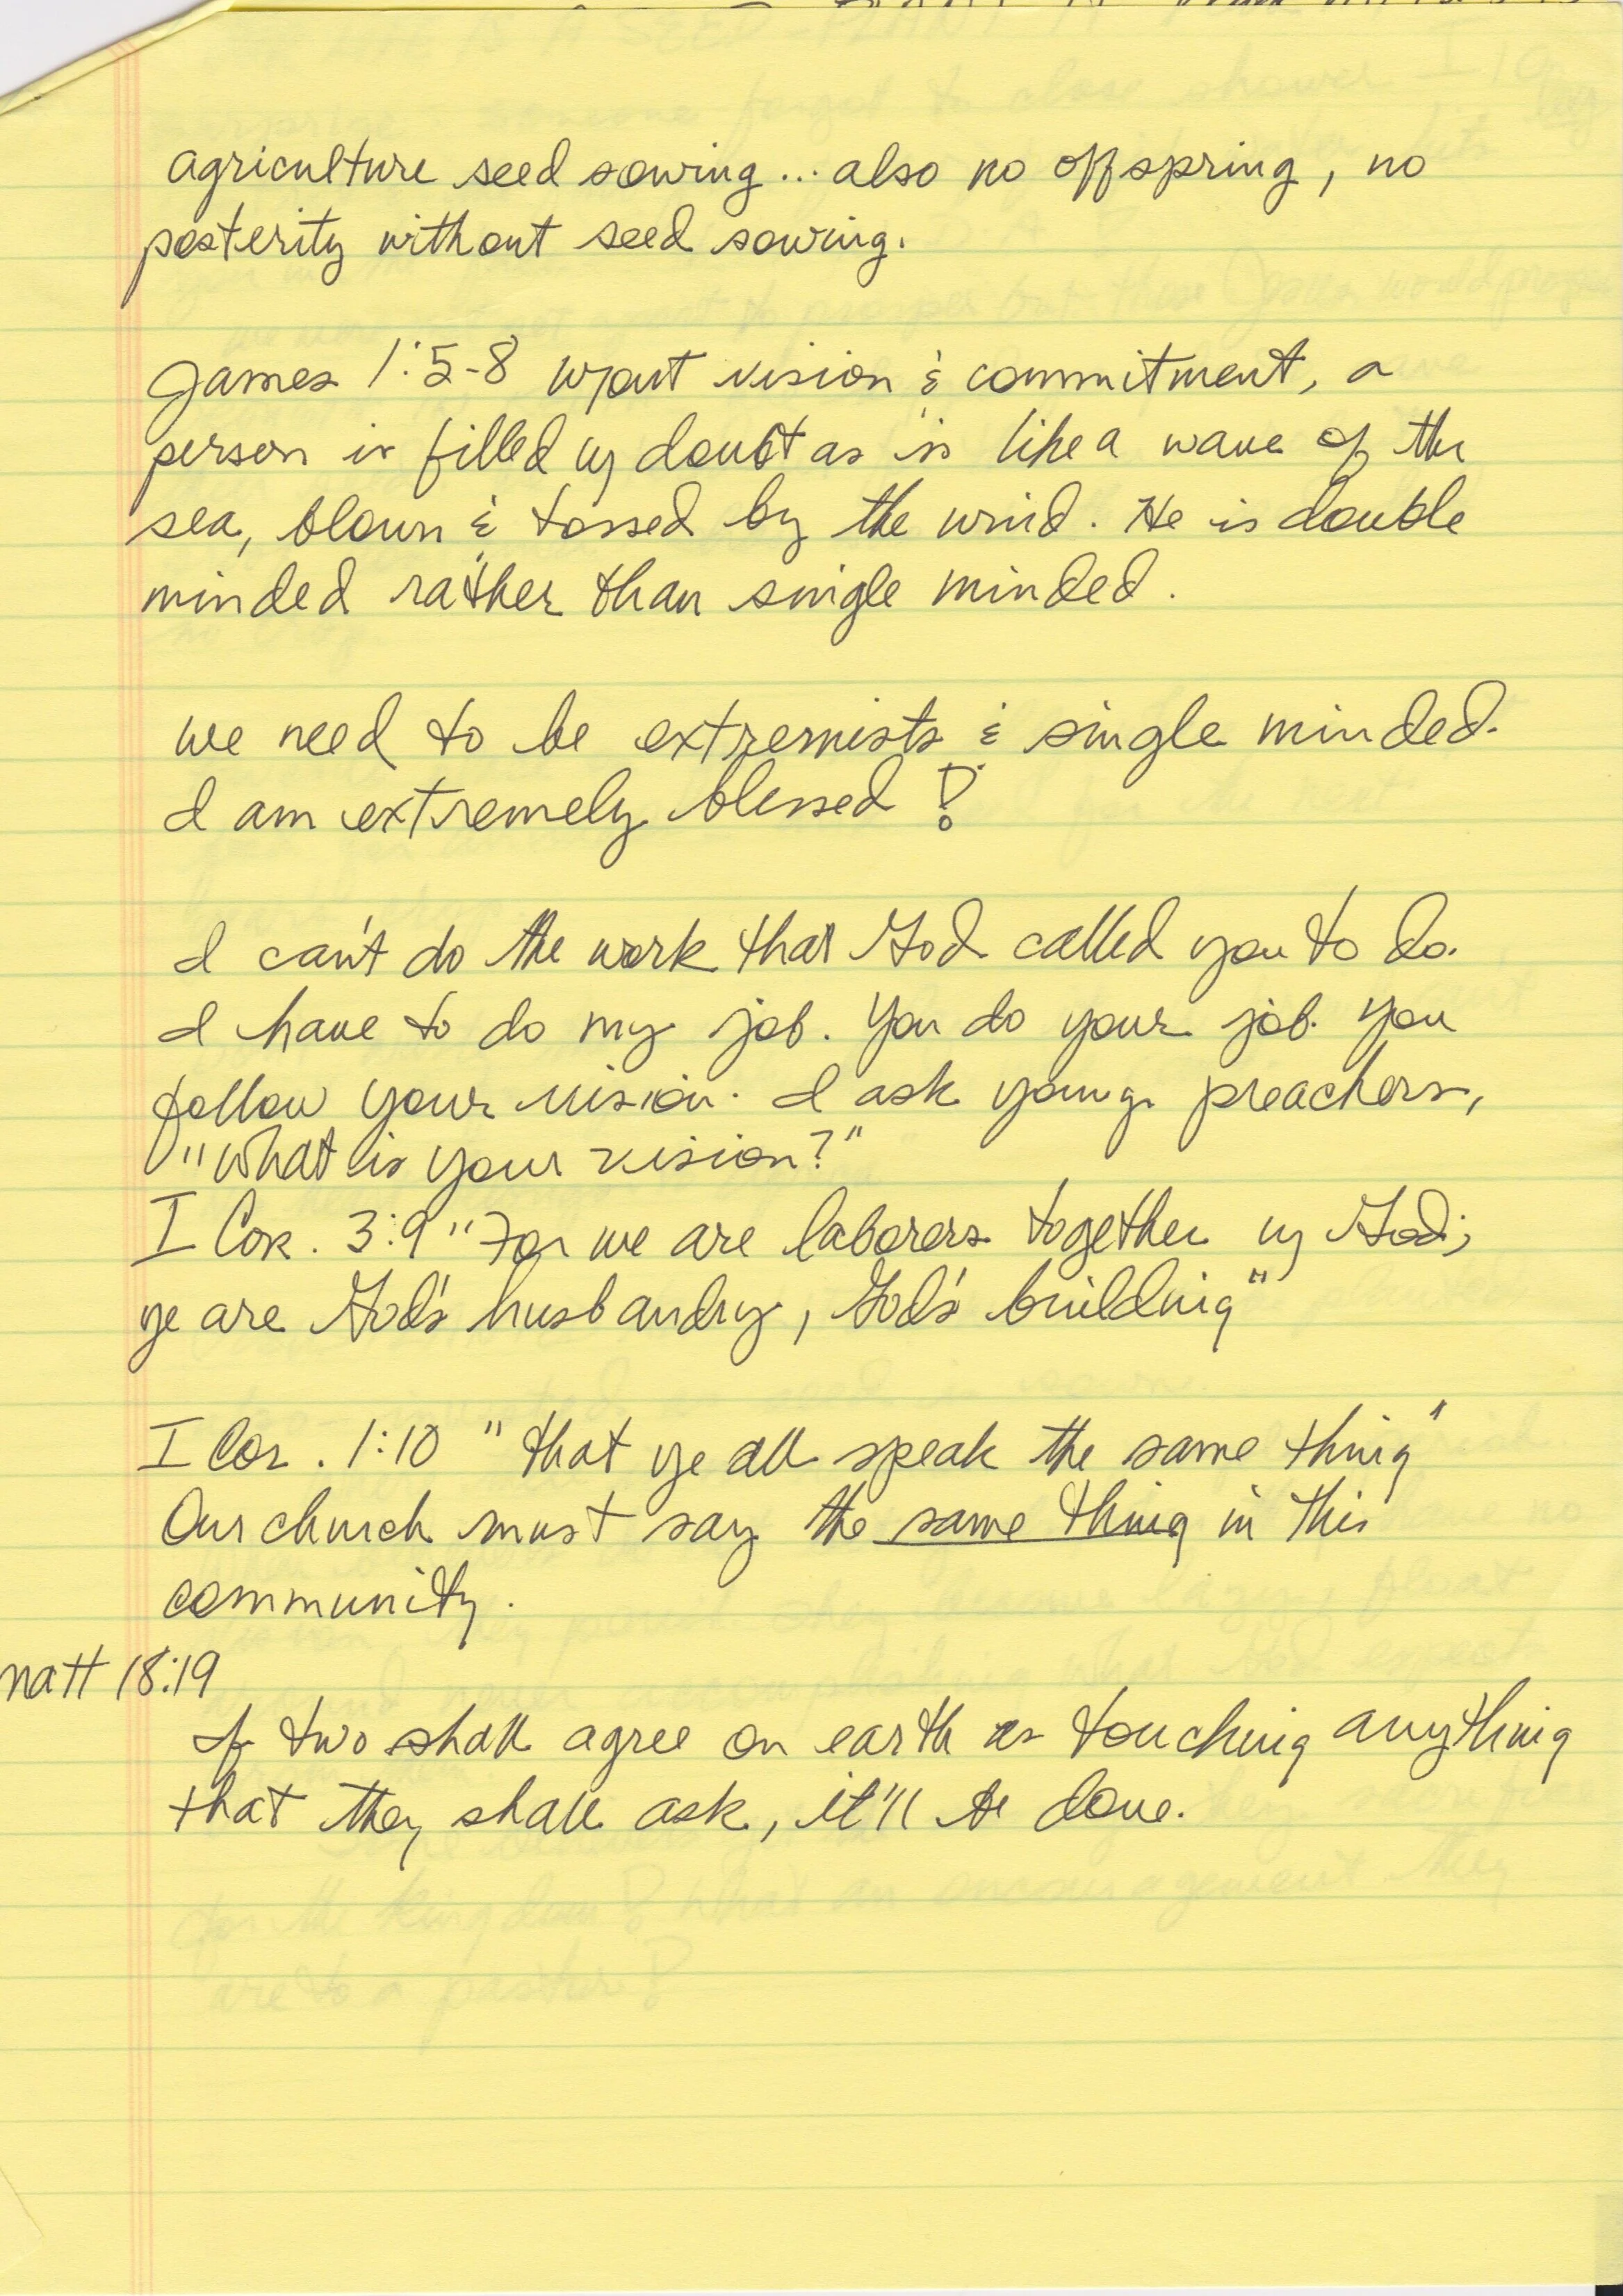 agriculture seed sowing... also no offspring, no
posterity without seed sowing.
James 1:5-8 w/out vision & commitment, a
person is filled w/ doubt as is like a wave of the
sea, blown & tossed by the wind. He is double
minded rather than single minded.
we need to be extremists & single minded.
I am extremely blessed!
I can't do the work that God called you to do.
I have to do my job. You do your job. You
follow your vision. I ask young preachers,
"What is your vision?"
I Cor. 3:9 "For we are laborers together w/ God;
ye are God's husbandry, God's building"
I Cor. 1:10 "that ye all speak the same thing"
Our church must say the same thing in this
community.
Matt 18:19
If two shall agree on earth as touching anything
that they shall ask, it'll be done.